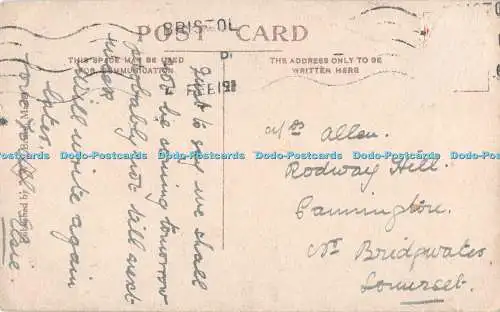 BRISTOL
POST CARD
THIS SPACE MAY BE USED
FOR COMMUNICATION
THE ADDRESS ONLY TO BE
WRITTEN HERE
Just to say we shall
not be coming tomorrow
Probably not till next
week
Will write again
later.
love to all
Elsie.
Mrs Allen.
Rodway Hill.
Cannington.
Nr Bridgwater
Somerset.
Dodo-Postcards Dodo-Postcards Dodo-Postcards Dodo-Postcards Dodo-Postcards Dodo-Postcards